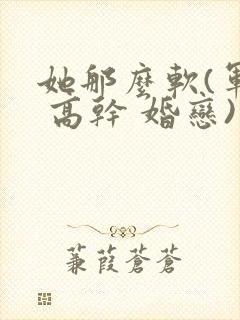 她那麼軟(軍
高幹 婚戀)
蒹葭蒼蒼